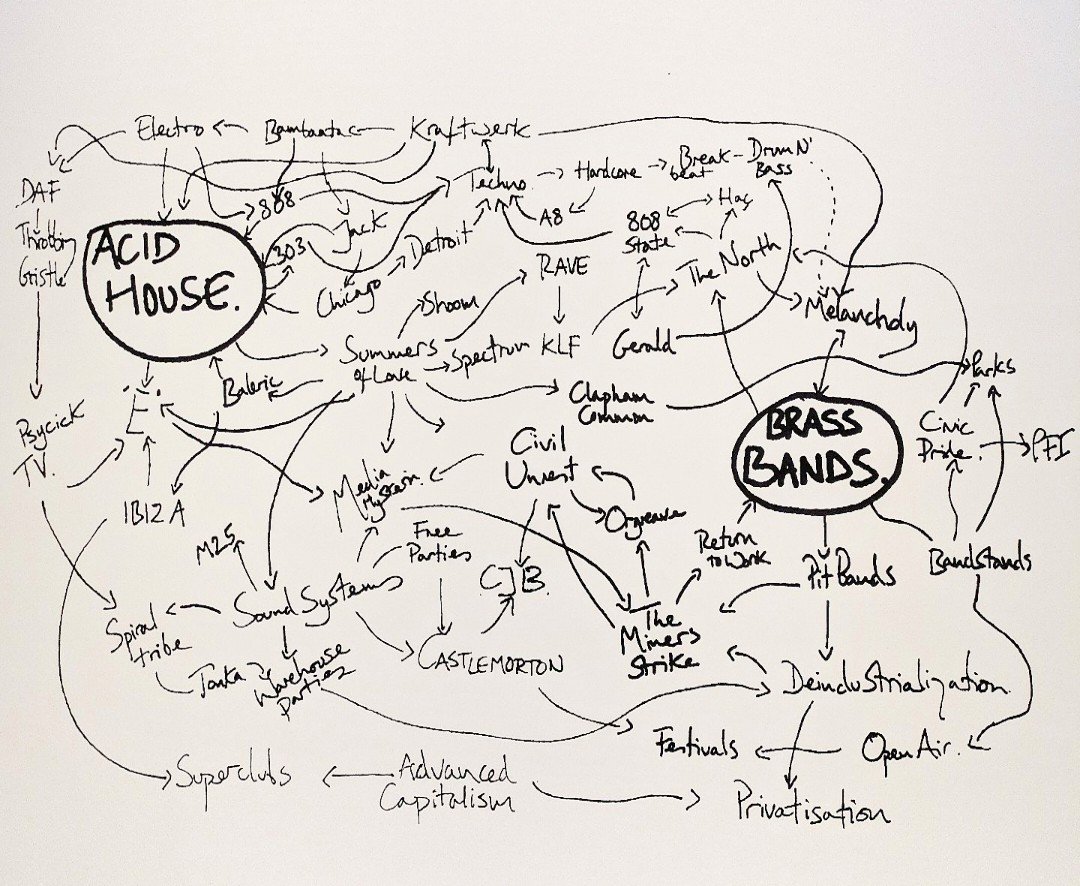 Electro
Bambaata
Kraftwerk
DAF
808
Techno
Hardcore
Break-
beat
Drum N'
Bass
Throbbin
Gristle
ACID
HOUSE.
303
Jack
Detroit
A8
808
State
Hac
The North
Chicago
RAVE
Shoom
Melancholy
Summers
of Love
Spectrum
KLF
Gerald
Baleric
Clapham
Common
Parks
'E'.
Psycick
TV.
Civil
Unrest
BRASS
BANDS.
Civic
Pride.
PFI
Media
Hysteria.
Orgreave
IBIZA
M25
Free
Parties
Return
to Work
Pit Bands
Bandstands
CJB.
Sound Systems
Spiral
tribe
CASTLEMORTON
The
Miners
Strike
Tonka
Warehouse
Parties
Deindustrialization
Festivals
Open Air.
Superclubs
Advanced
Capitalism
Privatisation